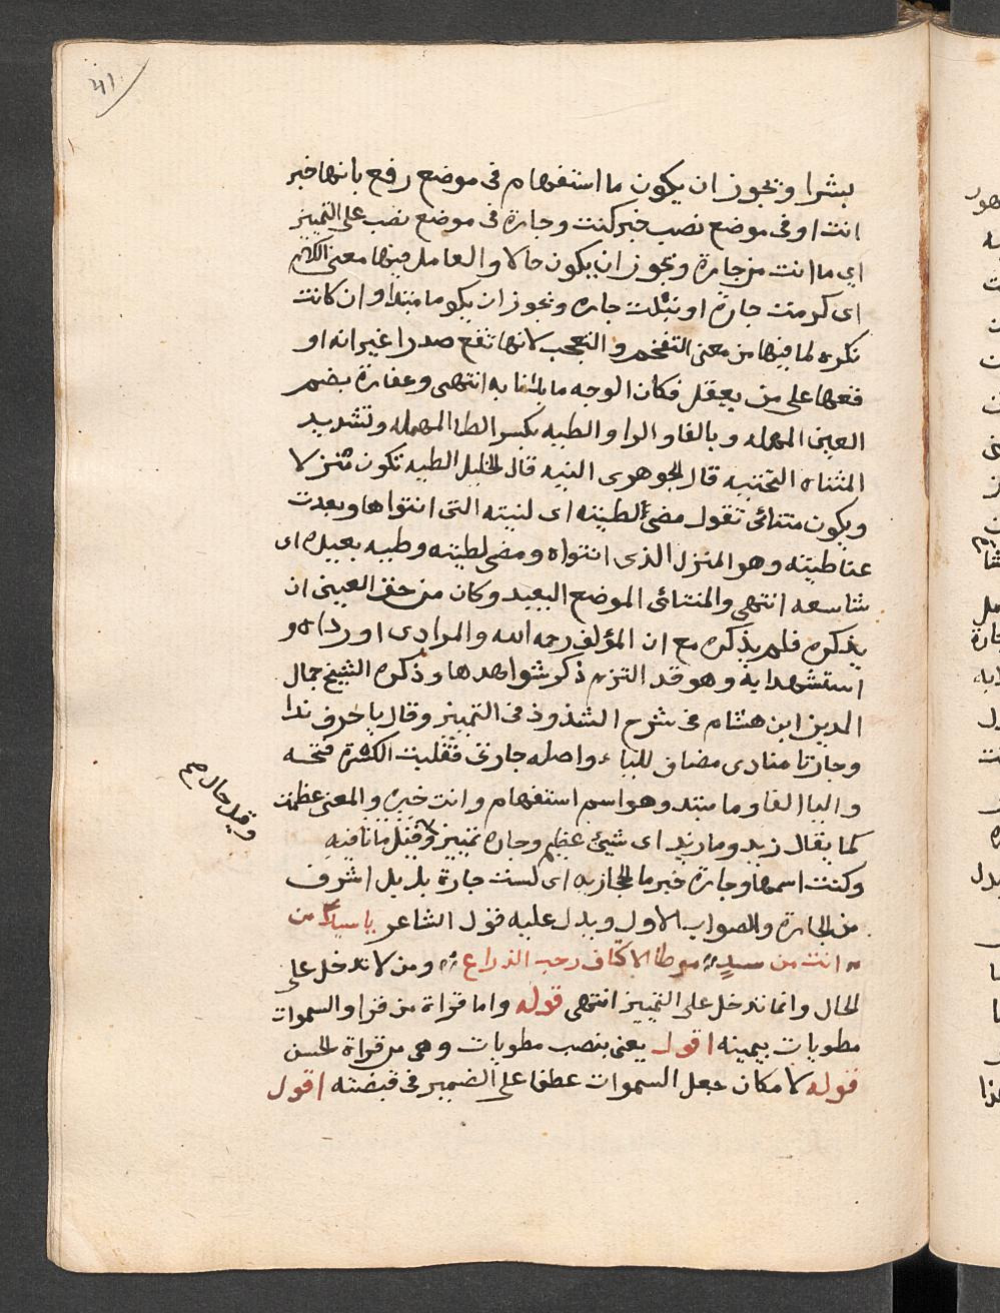 41
بشرا ويجوز ان يكون ما استفهام فى موضع رفع بانها خبر
انت او فى موضع نصب خبر كنت وجارة فى موضع نصب على التمييز
اى ما انت من جارة ويجوز ان يكون حالا والعامل فيها معنى الكلام
اى كرمت جارة او نبلت جاره ويجوز ان يكو ما مبتدا وان كانت
نكره لما فيها من معنى التفخيم والتعجب لانها تقع صدرا غير انه او
قعها على من يعقل فكان الوجه ما بدأنا به انتهى وعفارة بضم
العين المهمله وبالفا والرا والطيه بكسر الطا المهمله وتشديد
المثناه التحتيه قال الجوهرى النيه قال الخليل الطيه تكون منزلا
ويكون منتائى تقول مضى لطيته اى لنيته التى انتواها وبعدت
عنا طيته وهو المنزل الذى انتواه ومضى لطيته وطيه بعيده اى
شاسعه انتهى والمنتائى الموضع البعيد وكان من حق العينى ان
يذكره فلم يذكره مع ان المؤلف رحمه الله والمرادى اورداه و
استشهدا به وهو قد التزم ذكر شواهدها وذكره الشيخ جمال
الدين ابن هشام فى شرح الشذوذ فى التمييز وقال يا حرف ندا
وجارتا منادى مضاف للياء واصله جارتى فقلبت الكسرة فتحه
واليا الفا وما مبتد وهو اسم استفهام وانت خبره والمعنى عظمت
كما يقال زيد وما زيد اى شيئ عظيم وجاره تمييز وقيل ما نافيه
وقيل حال صح
وكنت اسمها وجارة خبر ما الحجازيه اى لست جارة بل اشرف
من الجارة والصواب الاول ويدل عليه قول الشاعر يا سيدا من
انت من سيد موطا الاكناف رحب الذراع ومن لا تدخل على
الحال وانما تدخل على التمييز انتهى قوله واما قراة من قرا والسموات
مطويات بيمينه اقول يعنى بنصب مطويات وهى من قراة الحسن
قوله لامكان جعل السموات عطفا على الضمير فى قبضته اقول